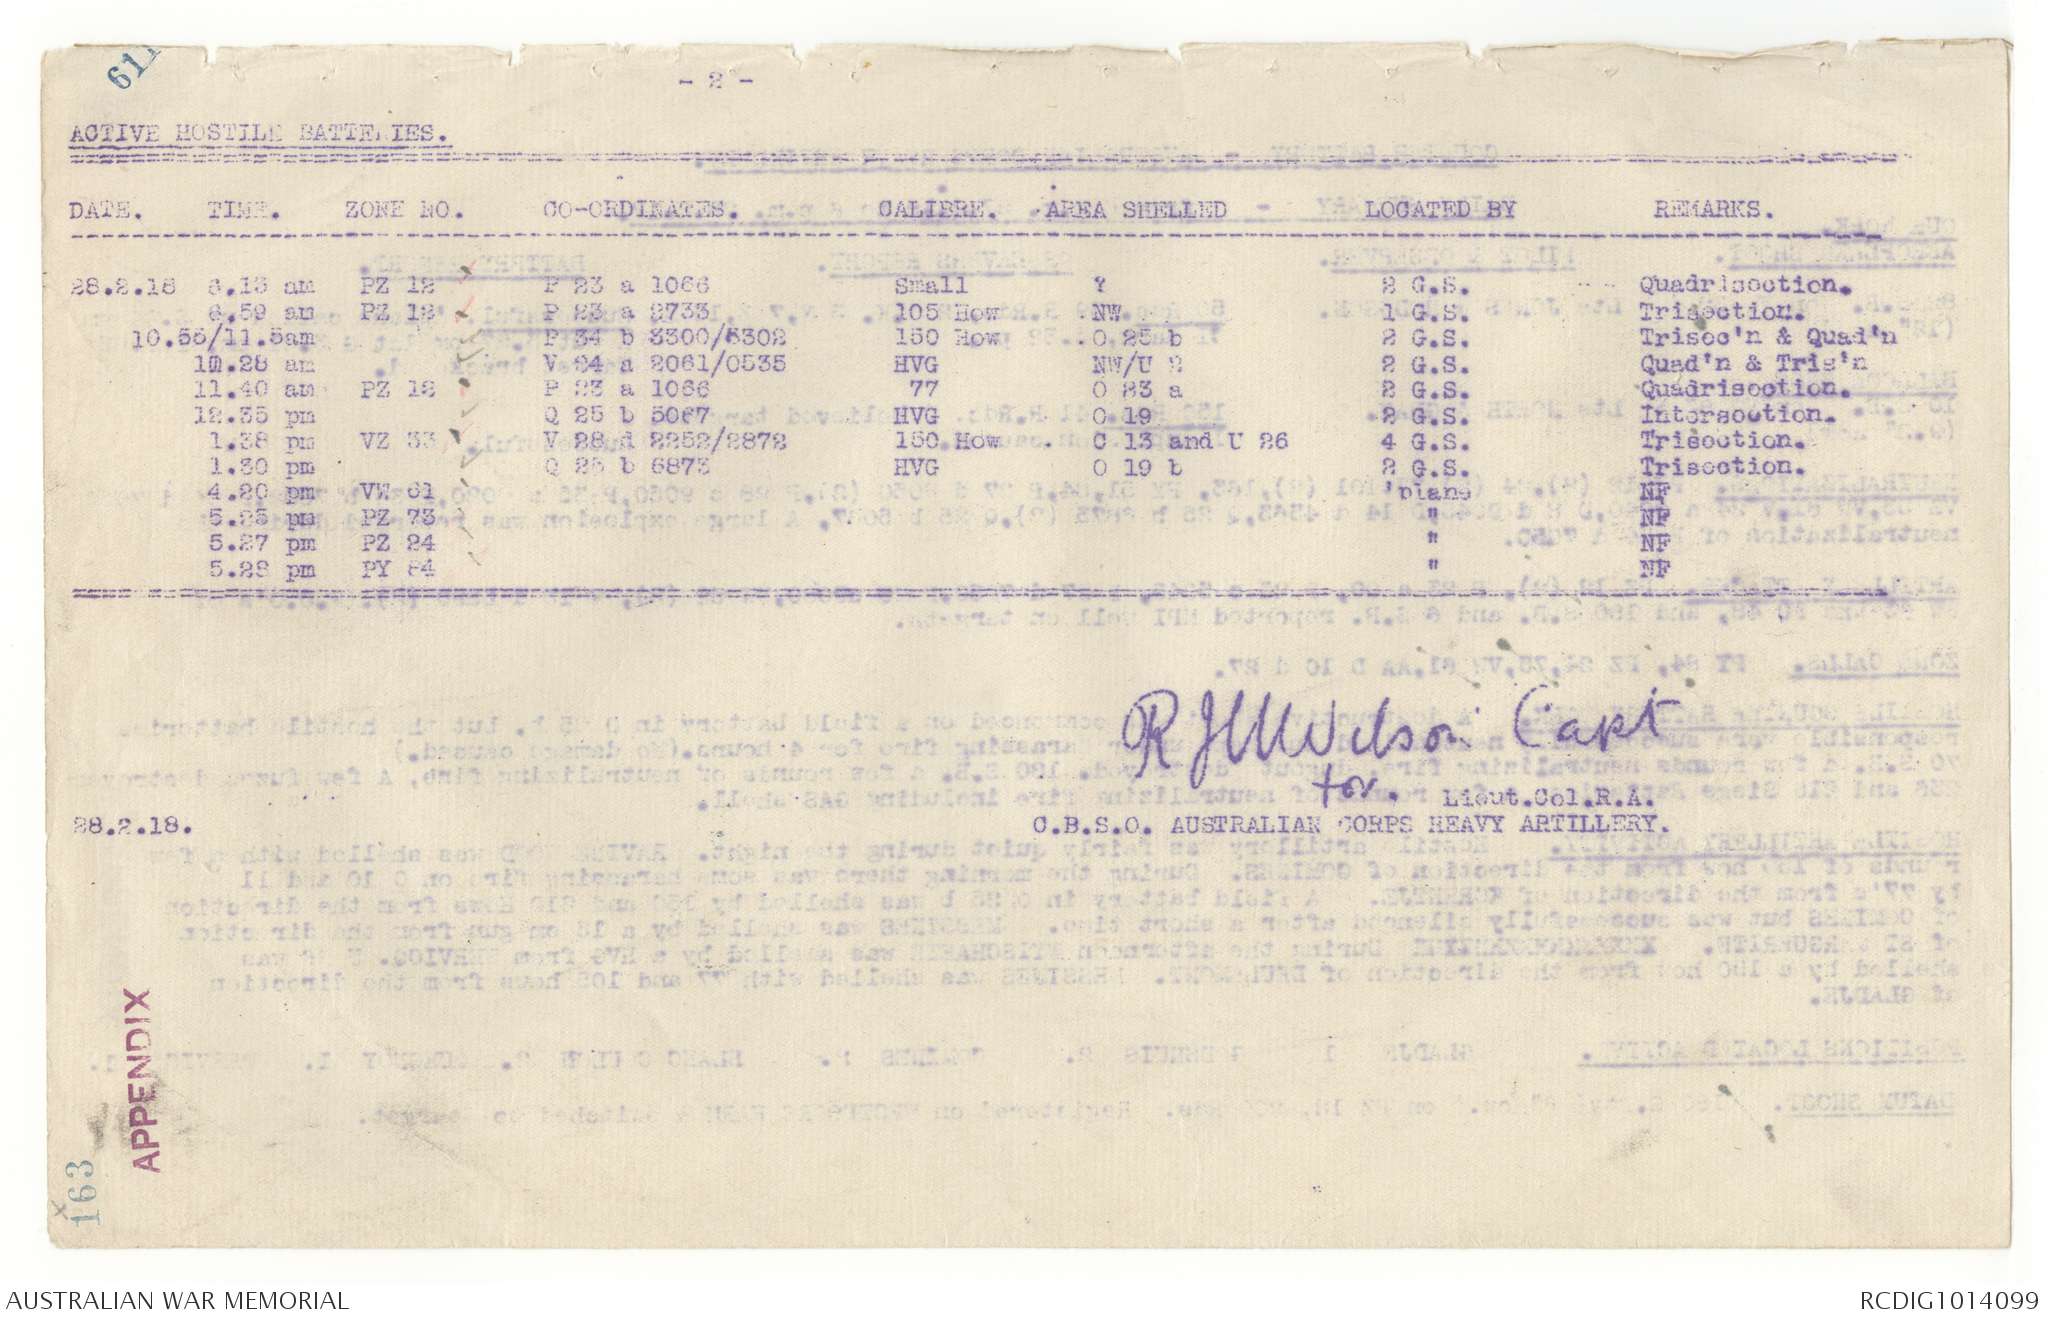 611
- 2 -
ACTIVE HOSTILE BATTERIES.
DATE. TIME. ZONE NO. CO-ORDINATES. CALIBRE. AREA SHELLED LOCATED BY REMARKS.
28.2.18 6.13 am PZ 12 P 23 a 1066 Small ? 2 G.S. Quadrisection.
6.59 am PZ 12 P 23 a 2733 105 How NW 1 G.S. Trisection.
10.55/11.5am P 34 b 3300/5302 150 How O 25 b 2 G.S. Trisec'n & Quad'n
.28 am V 24 a 2061/0535 HVG NW/U 2 2 G.S. Quad'n & Tris'n
11.40 am PZ 12 P 23 a 1066 77 O 23 a 2 G.S. Quadrisection.
12.35 pm Q 25 b 5067 HVG O 19 2 G.S. Intersection.
1.38 pm VZ 33 V 28 d 2252/2872 150 How C 13 and U 26 4 G.S. Trisection.
1.30 pm Q 25 b 6873 HVG O 19 b 2 G.S. Trisection.
4.20 pm VW 61 'plane NF
5.25 pm PZ 73 " NF
5.27 pm PZ 24 " NF
5.28 pm PY 84 " NF
Wilson Capt
for. Lieut.Col.R.A.
28.2.18. C.B.S.O. AUSTRALIAN CORPS HEAVY ARTILLERY.
APPENDIX
163
AUSTRALIAN WAR MEMORIAL RCDIG1014099